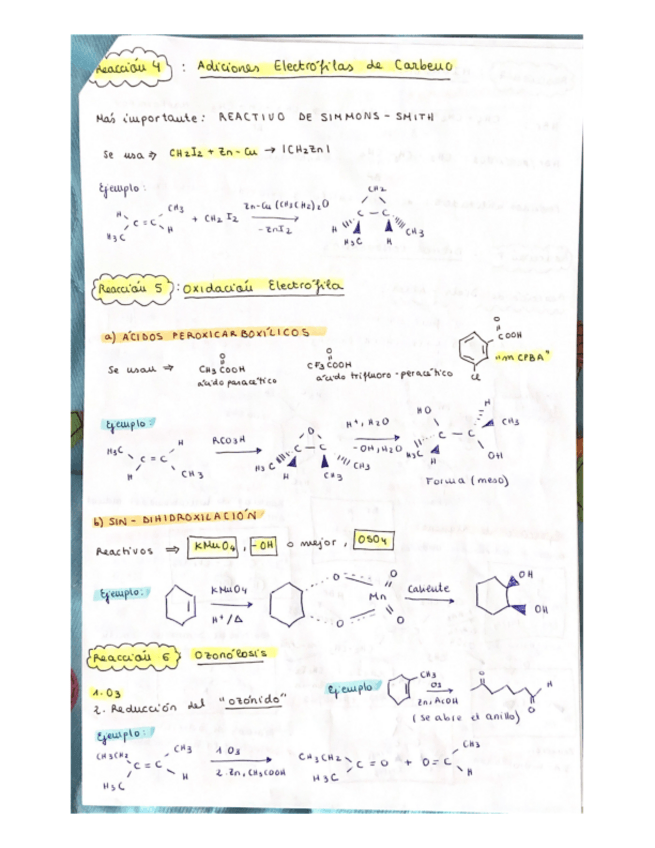 Reacción 4 : Adiciones Electrófilas de Carbeno
Más importante: REACTIVO DE SIMMONS-SMITH
Se usa ⇒ CH2I2 + Zn-Cu → ICH2ZnI
Ejemplo:
H CH3 C=C H3C H + CH2I2 Zn-Cu (CH3CH2)2O -ZnI2 CH2 C-C H H3C H CH3
Reacción 5 : Oxidación Electrófila
a) ÁCIDOS PEROXICARBOXÍLICOS
Se usan ⇒ O CH3COOH O CF3COOH O COOH Cl "mCPBA"
ácido paracético ácido trifluoro-peracético
Ejemplo:
H3C H C=C H CH3 RCO3H O C-C H3C H CH3 CH3 H+, H2O -OH, H2O HO H CH3 C-C H3C H OH
Forma (meso)
b) SIN-DIHIDROXILACIÓN
Reactivos ⇒ KMnO4 , -OH o mejor , OSO4
Ejemplo: KMnO4 H+/Δ O O Mn O O Caliente OH OH
Reacción 6 : Ozonólosis
1. O3
2. Reducción del "ozónido"
Ejemplo CH3 O3 Zn, AcOH O O H
(se abre el anillo)
Ejemplo:
CH3CH2 CH3 C=C H3C H 1. O3 2. Zn, CH3COOH CH3CH2 H3C C=O + O=C CH3 H